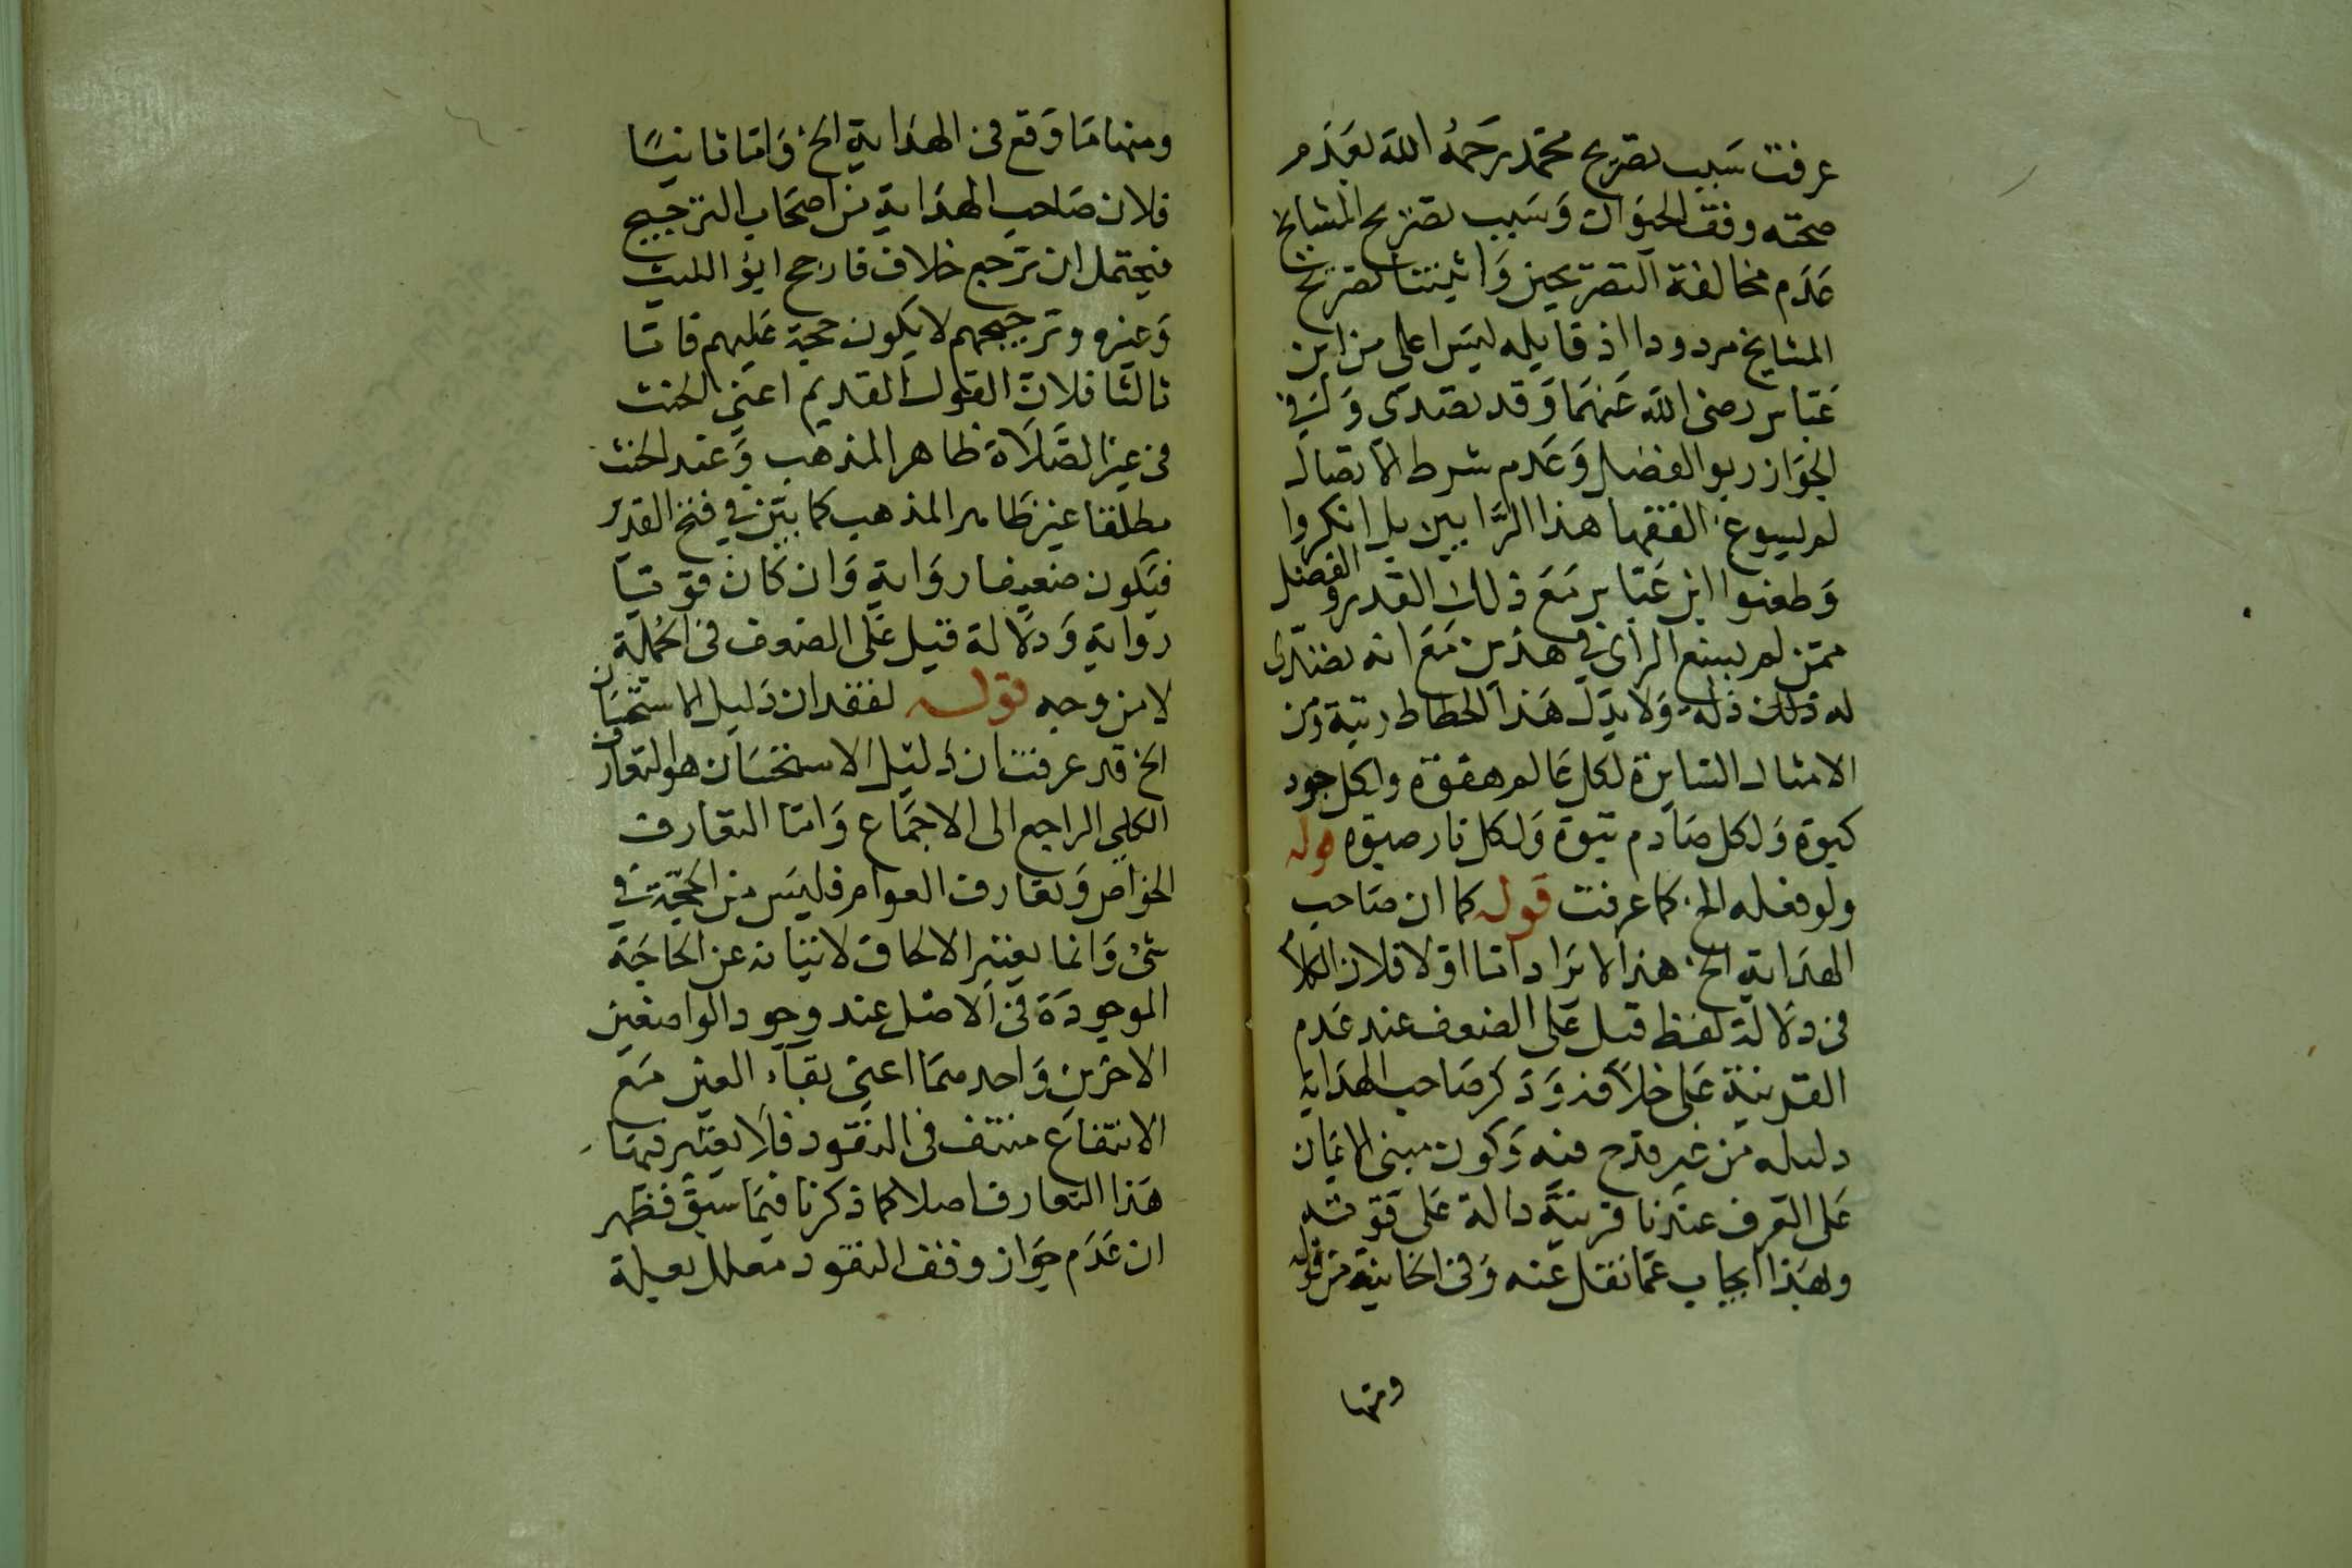 عرفت سبب تصريح محمد رحمه الله بعدم
صحته وقف الحيوان وسبب تصريح المشايخ
عدم مخالفة التصريحين واثبتنا تصريح
المشايخ مردودا اذ قايله ليس اعلى من ابن
عباس رضى الله عنهما وقد تصدى
الجواز ربو الفضل وعدم شرط الاتصال
لم يسوغ الفقها هذا الرايين بل انكروا
وطعنوا ابن عباس مع ذلك القدر والفضل
ممن لم يسع الراى فى هذين مع انه تصدى
له ذلك ذلة ولا يدل هذا الحطاط رتبة ومن
الامثال السايرة لكل عالم هفوة ولكل جود
كبوة ولكل صارم نبوة ولكل نار صبوة قوله
ولو فعله الخ كما عرفت قوله كما ان صاحب
الهداية الخ هذا الايراد اما اولا فلان الكلام
فى دلالة لفظ قيل على الضعف عند عدم
القرينة على خلافه وذكر صاحب الهداية
دليله من غير قدح فيه وكون مبنى الايمان
على العرف عندنا قرينة دالة على قوته
وبهذا ايجاب عما نقل عنه وفى الخانية من قوله
ومنها
ومنها ما وقع فى الهداية الخ واما ثانيا
فلان صاحب الهداية من اصحاب الترجيح
فيحتمل ان ترجح خلاف فارجح ابو الليث
وغيره وترجيحهم لا يكون حجة عليهم فاما
ثالثا فلان القول القديم اعنى الحنث
فى غير الصلاة ظاهر المذهب وعند الحنث
مطلقا غير ظاهر المذهب كما بين فى فتح القدير
فيكون ضعيفا رواية وان كان قويا
رواية ودلالة قيل على الضعف فى الجملة
لا من وجه قوله لفقدان دليل الاستحسان
الخ قد عرفت ان دليل الاستحسان هو التعارف
الكلى الراجع الى الاجماع واما التعارف
الخواص وتعارف العوام فليس من الحجة فى
شئ وانما يعتبر الالحاق لانبيانه عن الحاجة
الموجودة فى الاصل عند وجود الواصفين
الاخرين واحدهما اعنى بقاء العين مع
الانتفاع منتف فى النقود فلا يعتبر فيها
هذا التعارف اصلا كما ذكرنا فيما سبق فظهر
ان عدم جواز وقف النقود معلل بعلة